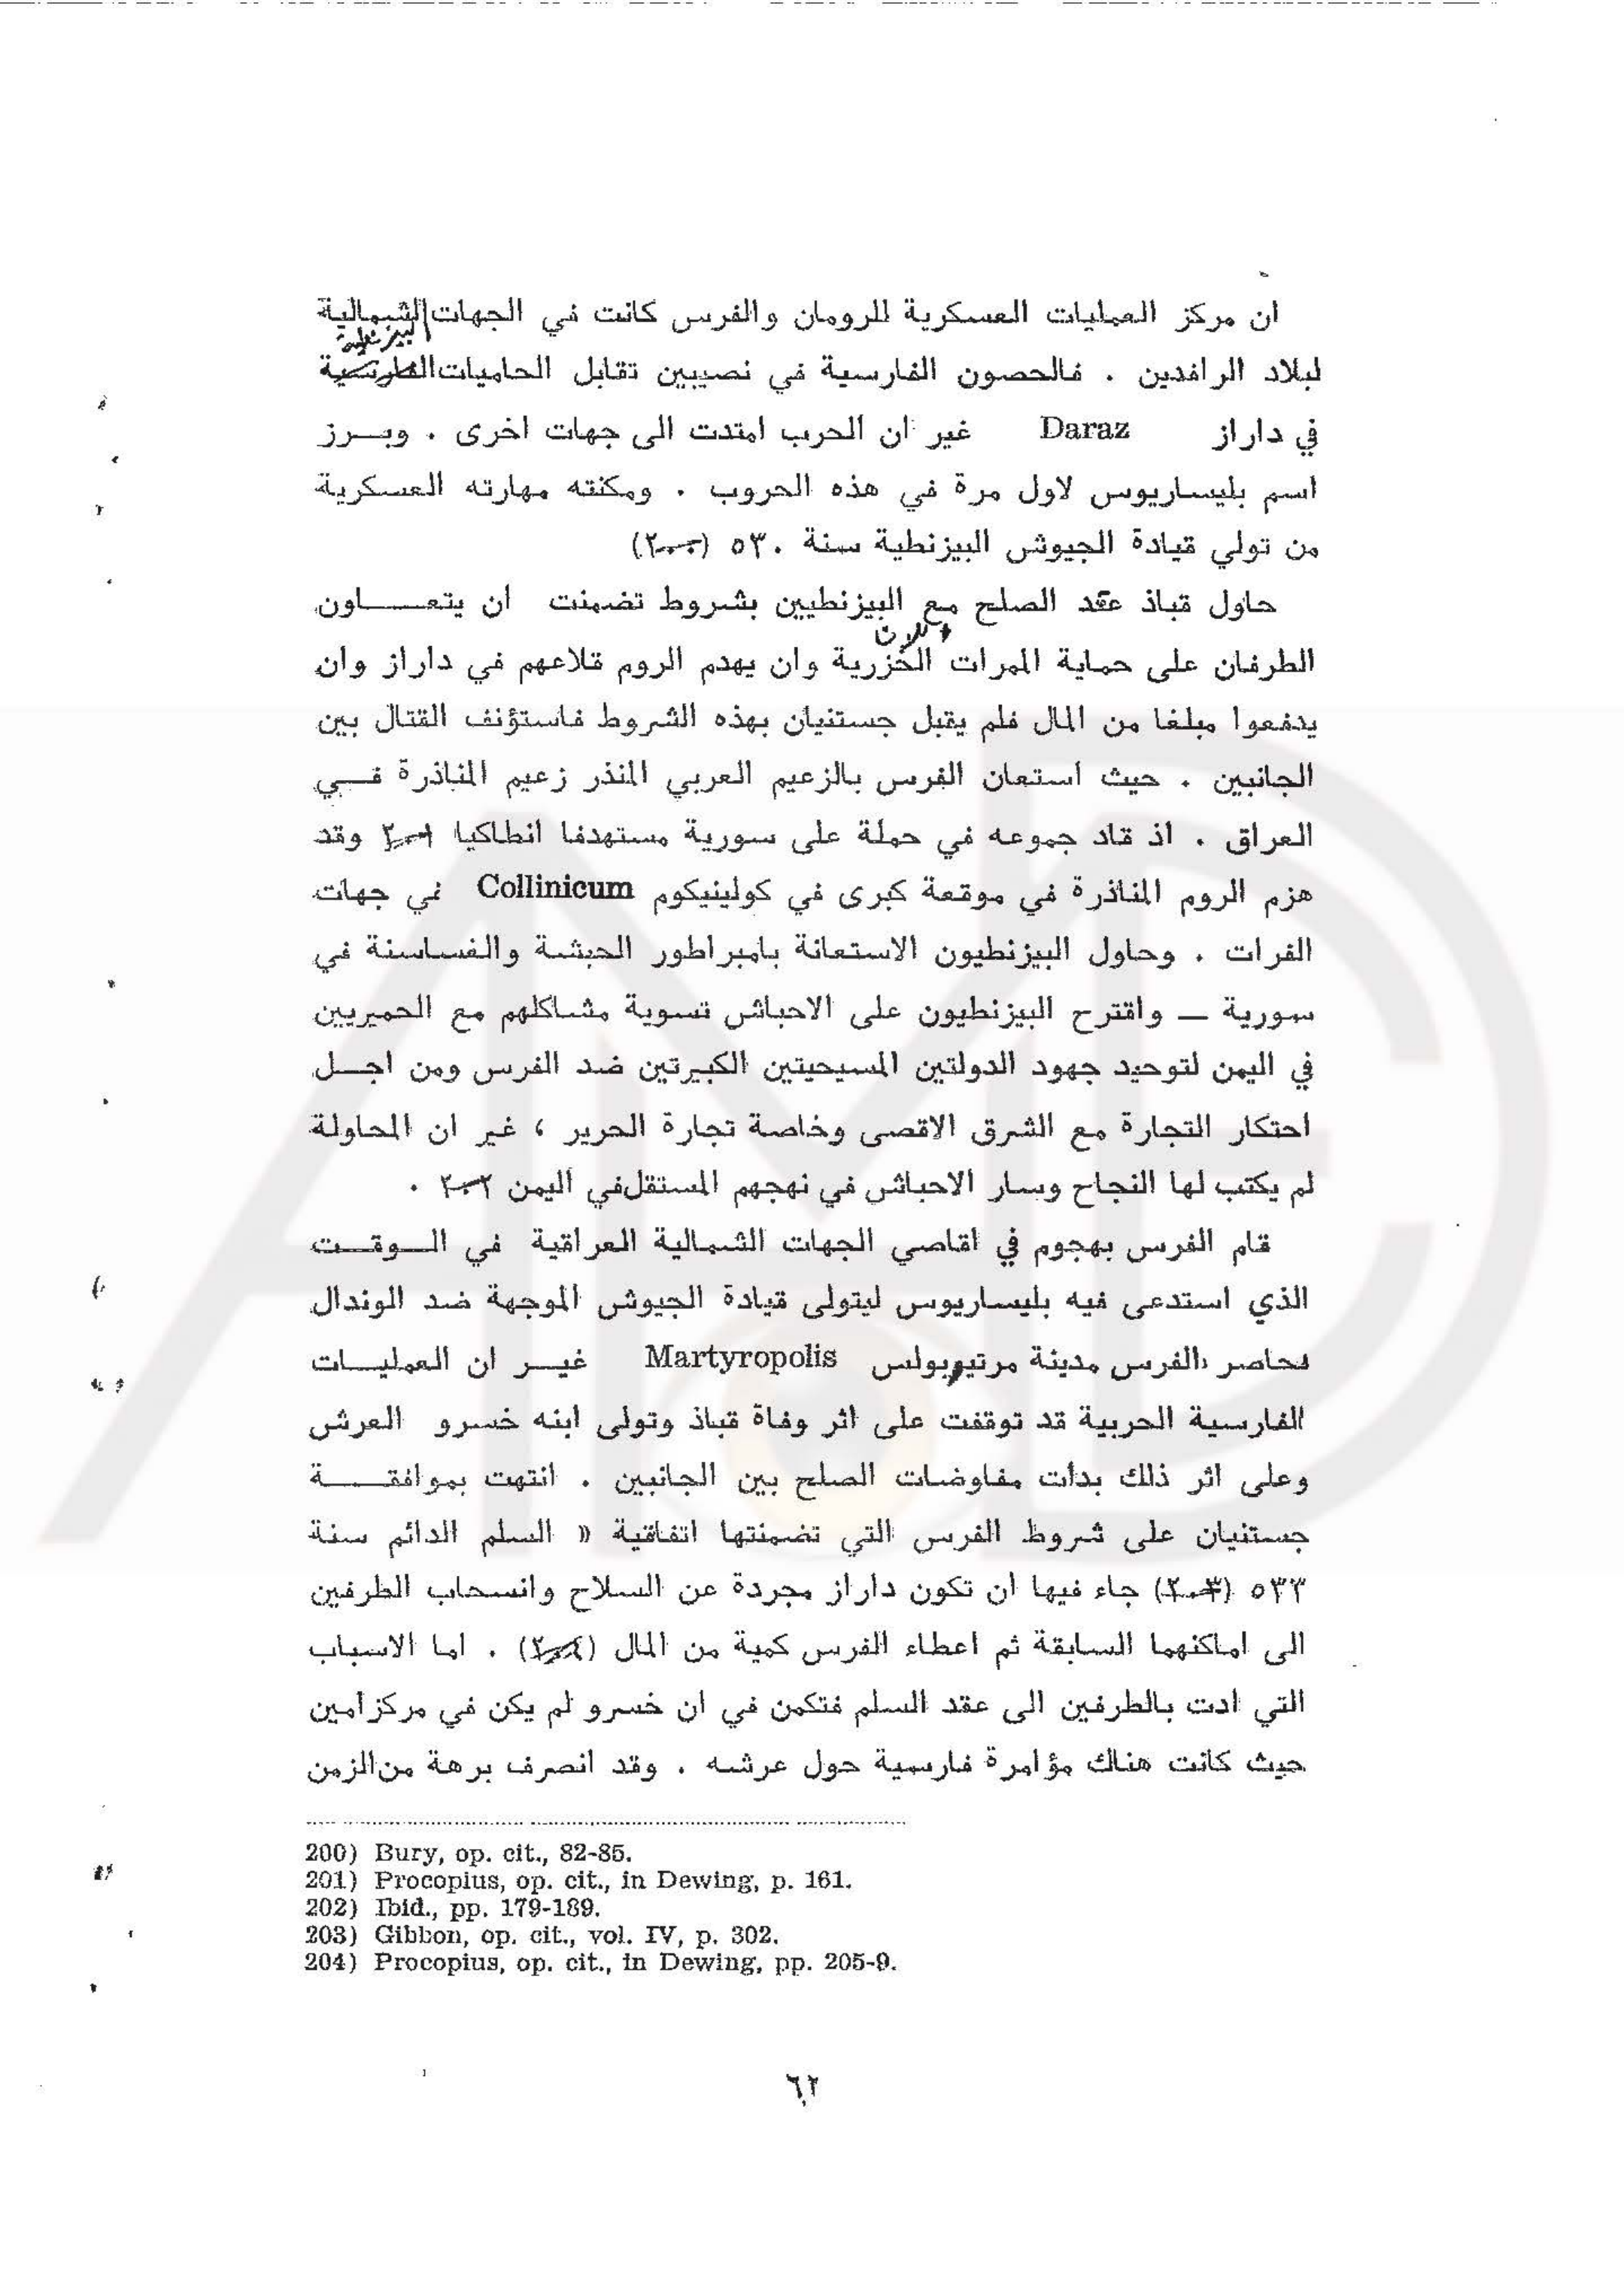 ان مركز العمليات العسكرية للرومان والفرس كانت في الجهات الشمالية
البيزنطية
لبلاد الرافدين . فالحصون الفارسية في نصيبين تقابل الحاميات الفارسية
في داراز Daraz غير ان الحرب امتدت الى جهات اخرى . وبـــرز
اسم بليساريوس لاول مرة في هذه الحروب . ومكنته مهارته العسكرية
من تولي قيادة الجيوش البيزنطية سنة ٥٣٠ (٢٠٠)
حاول قباذ عقد الصلح مع البيزنطيين بشروط تضمنت ان يتعـــــاون
الطرفان على حماية الممرات الخزرية وان يهدم الروم قلاعهم في داراز وان
يدفعوا مبلغا من المال فلم يقبل جستنيان بهذه الشروط فاستؤنف القتال بين
الجانبين . حيث استعان الفرس بالزعيم العربي المنذر زعيم المناذرة فـــي
العراق . اذ قاد جموعه في حملة على سورية مستهدفا انطاكيا ٢٠١ وقد
هزم الروم المناذرة في موقعة كبرى في كولينيكوم Collinicum في جهات
الفرات . وحاول البيزنطيون الاستعانة بامبراطور الحبشة والغساسنة في
سورية — واقترح البيزنطيون على الاحباش تسوية مشاكلهم مع الحميريين
في اليمن لتوحيد جهود الدولتين المسيحيتين الكبيرتين ضد الفرس ومن اجـــل
احتكار التجارة مع الشرق الاقصى وخاصة تجارة الحرير ، غير ان المحاولة
لم يكتب لها النجاح وسار الاحباش في نهجهم المستقل في اليمن ٢٠٢ .
قام الفرس بهجوم في اقاصي الجهات الشمالية العراقية في الـــوقـــت
الذي استدعى فيه بليساريوس ليتولى قيادة الجيوش الموجهة ضد الوندال
فحاصر الفرس مدينة مرتيروبولس Martyropolis غيـــر ان العمليـــات
الفارسية الحربية قد توقفت على اثر وفاة قباذ وتولى ابنه خسرو العرش
وعلى اثر ذلك بدأت مفاوضات الصلح بين الجانبين . انتهت بموافقـــــة
جستنيان على شروط الفرس التي تضمنتها اتفاقية « السلم الدائم سنة
٥٣٣ (٢٠٣) جاء فيها ان تكون داراز مجردة عن السلاح وانسحاب الطرفين
الى اماكنهما السابقة ثم اعطاء الفرس كمية من المال (٢٠٤) . اما الاسباب
التي ادت بالطرفين الى عقد السلم فتكمن في ان خسرو لم يكن في مركز أمين
حيث كانت هناك مؤامرة فارسية حول عرشه . وقد انصرف برهة من الزمن
200) Bury, op. cit., 82-85.
201) Procopius, op. cit., in Dewing, p. 161.
202) Ibid., pp. 179-189.
203) Gibbon, op. cit., vol. IV, p. 302.
204) Procopius, op. cit., in Dewing, pp. 205-9.
٦٢